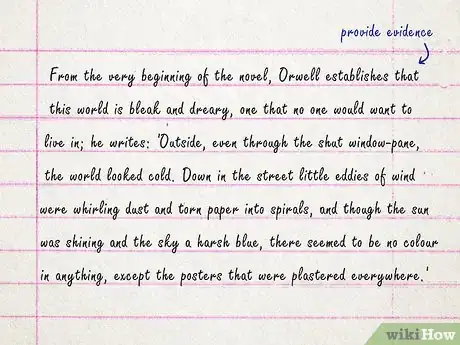 provide evidence
From the very beginning of the novel, Orwell establishes that
this world is bleak and dreary, one that no one would want to
live in; he writes: 'Outside, even through the shut window-pane,
the world looked cold. Down in the street little eddies of wind
were whirling dust and torn paper into spirals, and though the sun
was shining and the sky a harsh blue, there seemed to be no colour
in anything, except the posters that were plastered everywhere.'
wikiHow